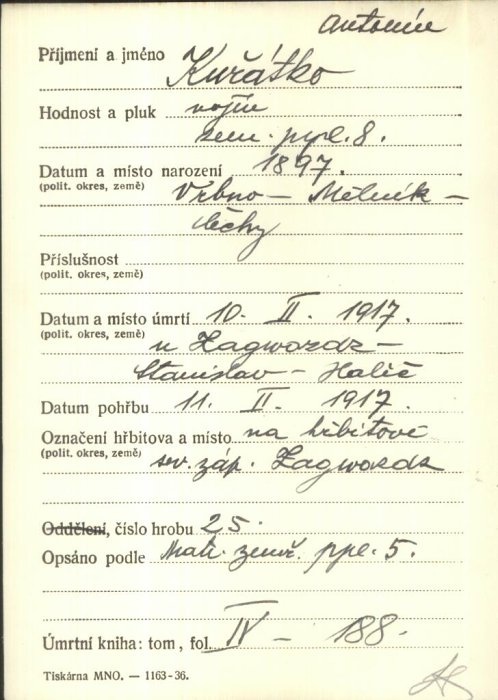 Antonín
Příjmení a jméno Kuřátko
Hodnost a pluk vojín
zem. ppl. 8.
Datum a místo narození 1897.
(polit. okres, země) Vrbno – Mělník –
Čechy
Příslušnost
(polit. okres, země)
Datum a místo úmrtí 10. II. 1917.
(polit. okres, země) u Zagwozdz –
Stanislav – Halič
Datum pohřbu 11. II. 1917.
Označení hřbitova a místo na hřbitově
(polit. okres, země) sev. záp. Zagwozdz
Oddělení, číslo hrobu 25.
Opsáno podle Matr. zemř. ppl. 5.
Úmrtní kniha: tom, fol. IV – 188.
Tiskárna MNO. — 1163-36.